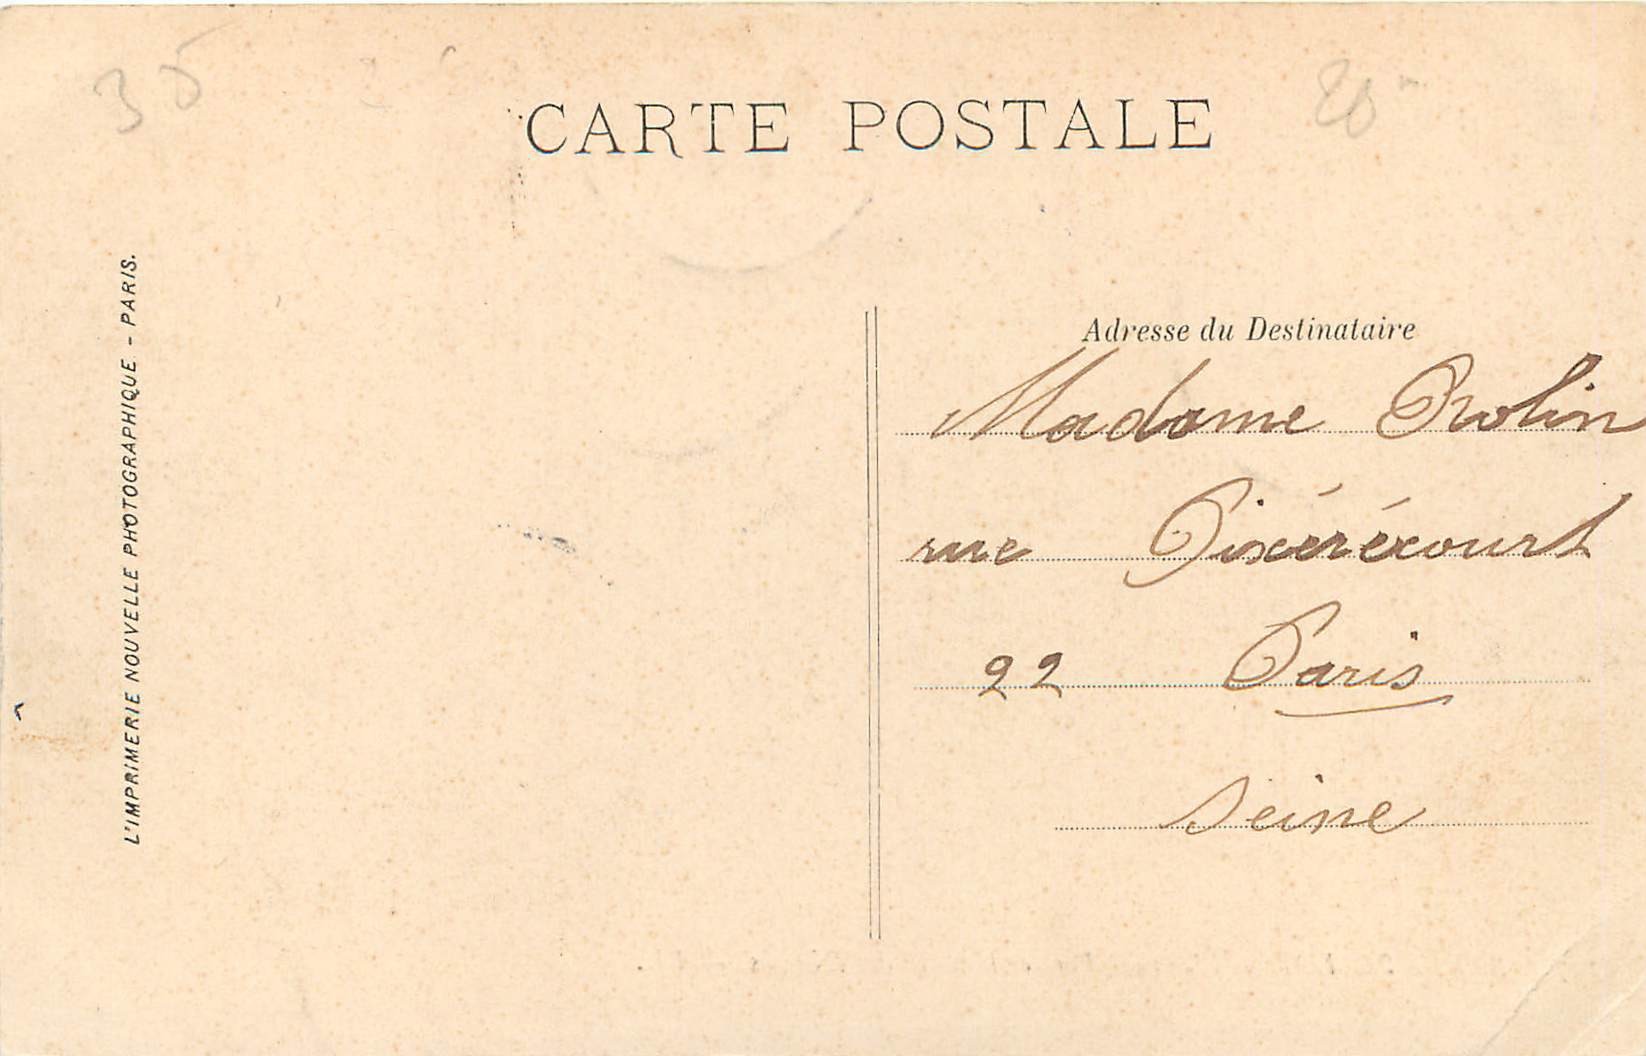 35
20
CARTE POSTALE
L'IMPRIMERIE NOUVELLE PHOTOGRAPHIQUE - PARIS.
Adresse du Destinataire
Madame Rolin
rue Pixérécourt
22 Paris
Seine